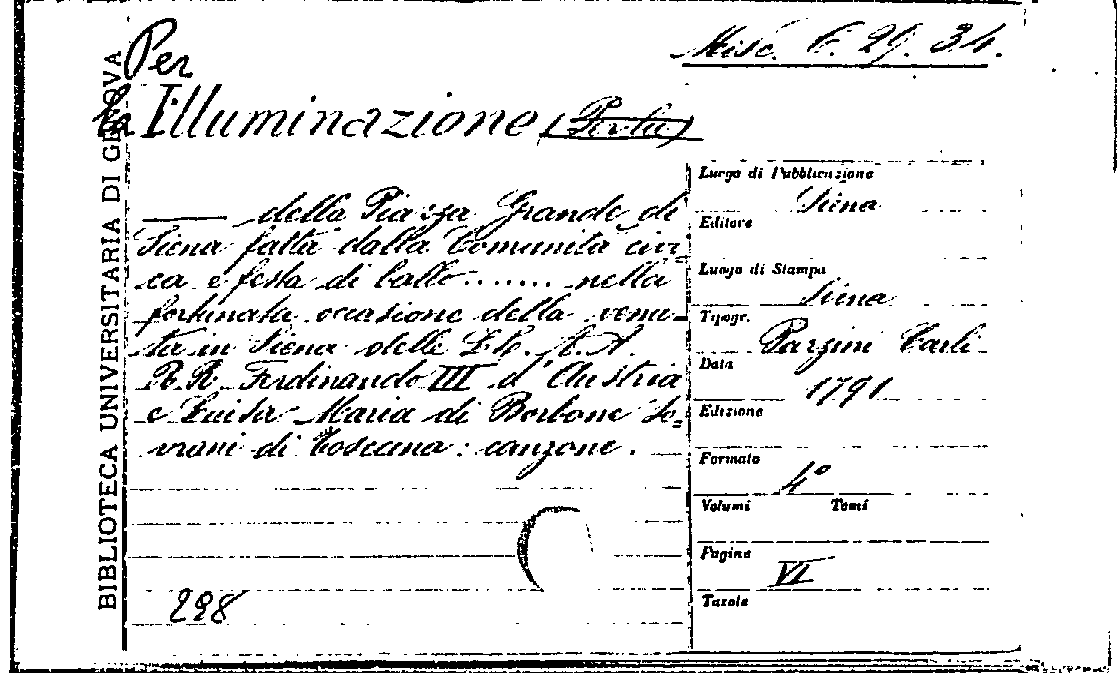 BIBLIOTECA UNIVERSITARIA DI GENOVA
Misc. C. 29. 34.
Per
la Illuminazione (Per la)
—— della Piazza Grande di
Siena fatta dalla Comunità civi=
ca e festa di ballo ....... nella
fortunata occasione della venu=
ta in Siena delle LL. A. A.
R.R. Ferdinando III d'Austria
e Luisa Maria di Borbone So=
vrani di Toscana: canzone.
298
Luogo di Pubblicazione
Siena
Editore
Luogo di Stampa
Siena
Tipogr.
Pazzini Carli
Data
1791
Edizione
Formato
4°
Volumi Tomi
Pagine
VI
Tavole